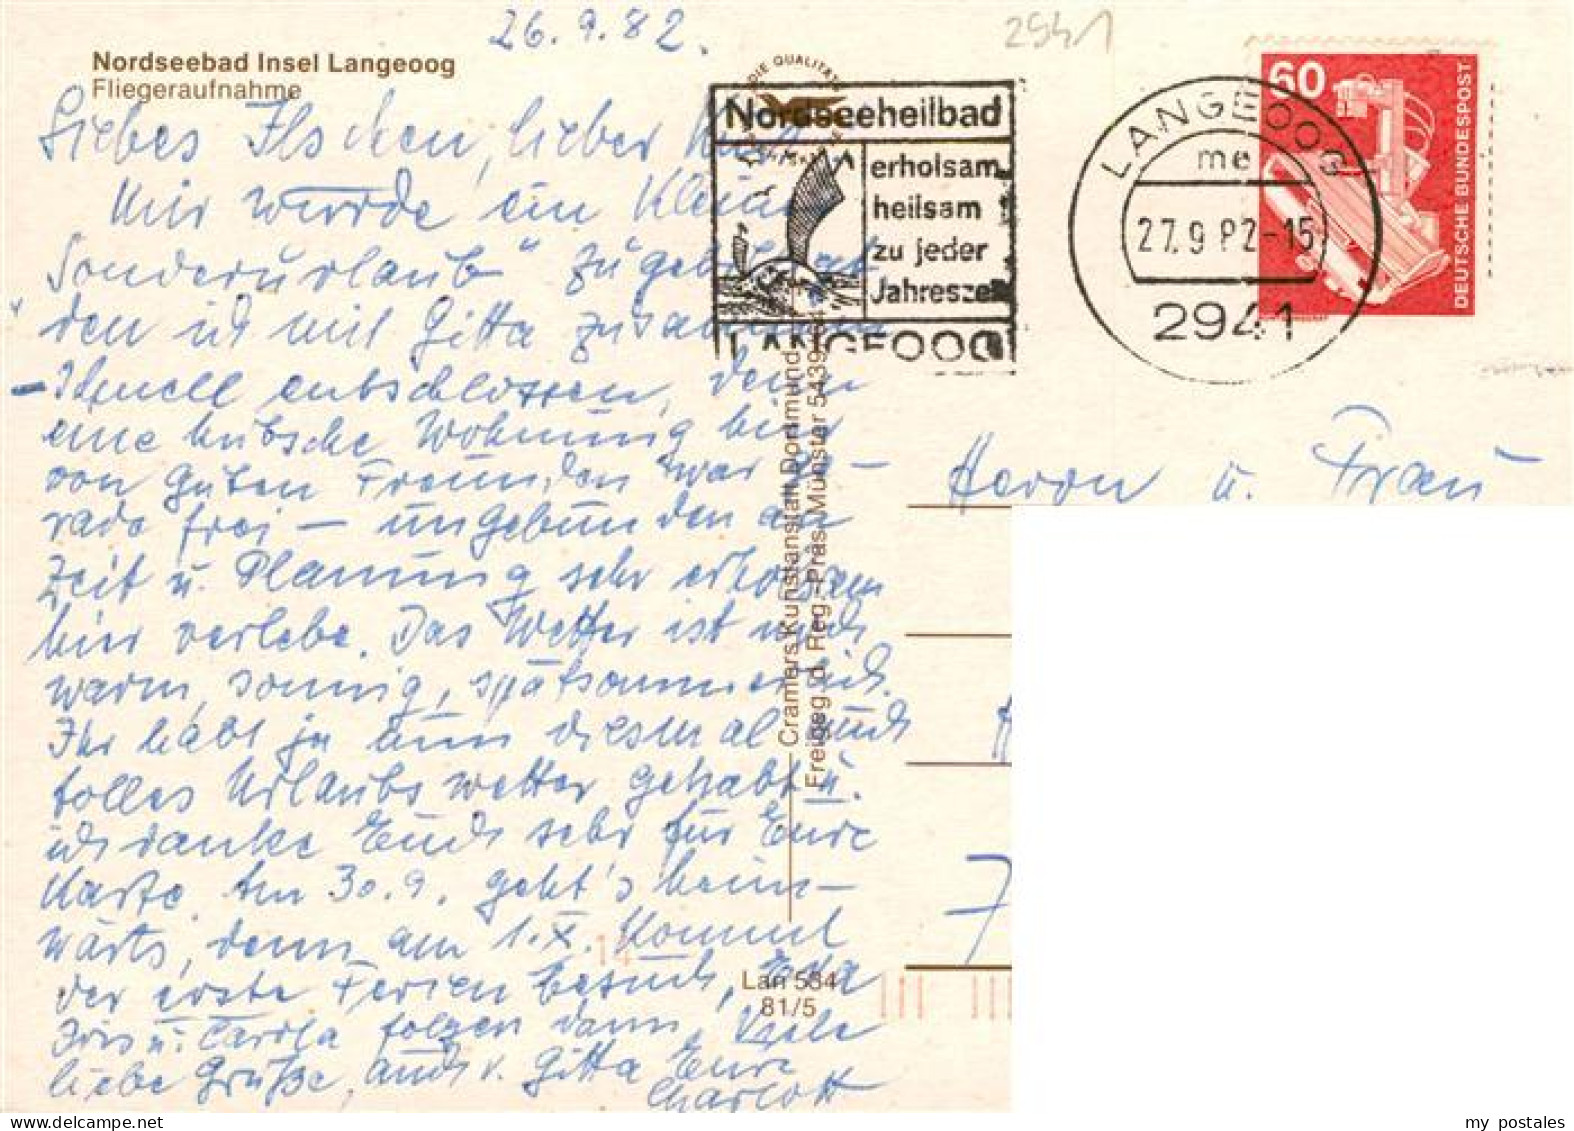 26.9.82.
2941
Nordseebad Insel Langeoog
Fliegeraufnahme
Liebes Ilschen, lieber
Mir wurde ein kleiner
„Sonderurlaub" zugebilligt
den ich mit Gitta zusammen
schnell entschlossen, denn
eine hübsche Wohnung hier
von guten Freunden war ge-
rade frei – ungebunden an
Zeit u. Planung sehr erholsam
hier verlebe. Das Wetter ist noch
warm, sonnig, spätsommerlich.
Ihr habt ja nun diesmal auch
tolles Urlaubswetter gehabt u.
ich danke Euch sehr für Eure
Karte. Am 30.9. geht's heim-
wärts, denn am 1.X. kommt
der erste Ferienbesuch, Eva
Iris u. Carola folgen dann. Viele
liebe Grüße, auch v. Gitta Eure
Charlott
DIE QUALITÄTS
Nordseeheilbad
erholsam
heilsam
zu jeder
Jahreszeit
LANGEOOG
LANGEOOG
me
27.9.82-15
2941
60
DEUTSCHE BUNDESPOST
Cramers Kunstanstalt Dortmund
Freigeg. d. Reg.-Präs. Münster 5439
Herrn u. Frau
7
14
Lan 584
81/5
my postales